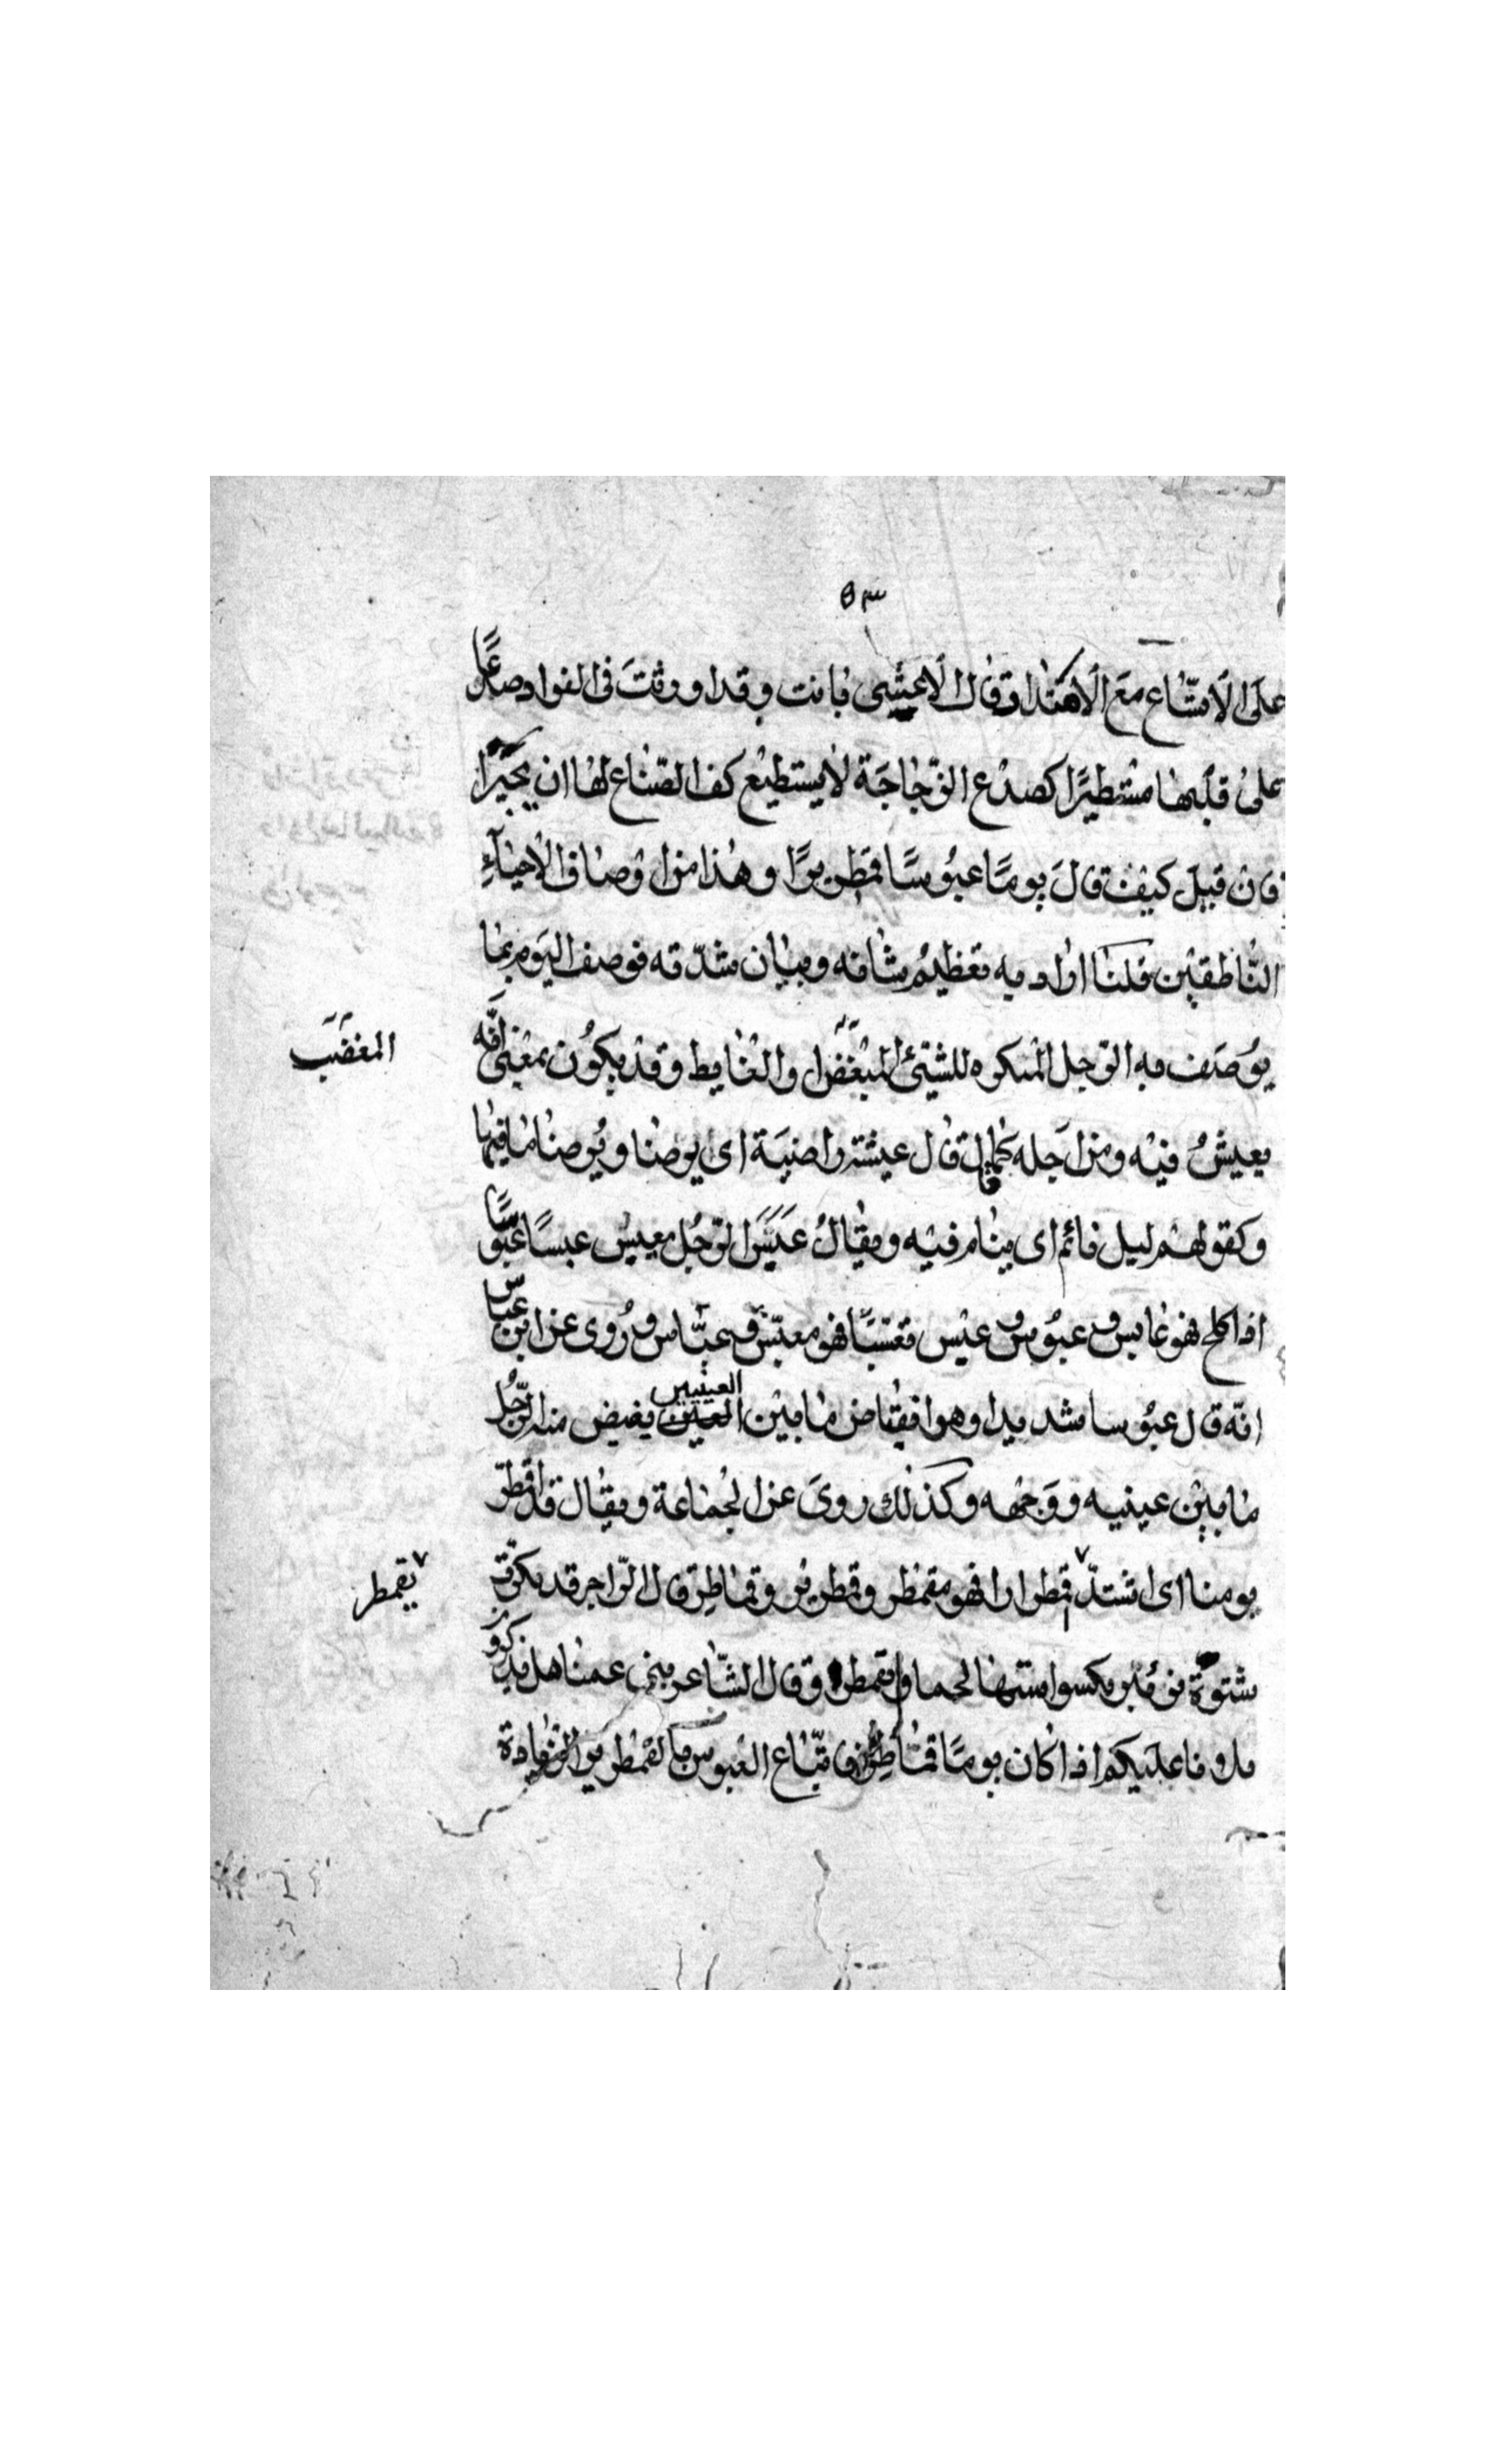 ٥٣
على الامتناع مع الاهتداء وقال الاعشى فبانت وقد اورثت فى الفواد صدعًا
على قلبها مستطيرًا كصدع الزجاجة لا يستطيع كف الصناع لها ان يجيرا
فان قيل كيف قال يومًا عبوسًا قمطريرًا وهذا من اوصاف الاحياء
الناطقين قلنا اراد به تعظيم شانه وبيان شدّته فوصف اليوم بما
يوصف به الرجل المنكره للشيئ المبغض والغايط وقد يكون بمعنى انه
المغضب
يعيش فيه ومن اجله كما قال عيشة راضية اى يوضا ويوصا ما فيها
وكقولهم ليل نائم اى ينام فيه ويقال عبس الرجل يعبس عبسًا عبوسًا
اذا كلح فهو عابس وعبوس وعبس تعبّسًا فهو معبّس وعبّاس وروى عن ابن عباس
انه قال عبوسا شديدا وهو انقباض ما بين العينين يغيض منه الرجل
ما بين عينيه ووجهه وكذلك روى عن الجماعة ويقال قد اقمطرّ
يومنا اى اشتدّ قمطرارا فهو مقمطر وقمطرير وقماطر قال الراجز قد بكرت
يقمطر
شتوة تزئير يكسوا ستها لحما وتقمطر وقال الشاعر بنى عمنا هل تذكرون
بلانا عليكم اذا كان يومًا قماطر واتباع العبوس بالقمطرير لافادة